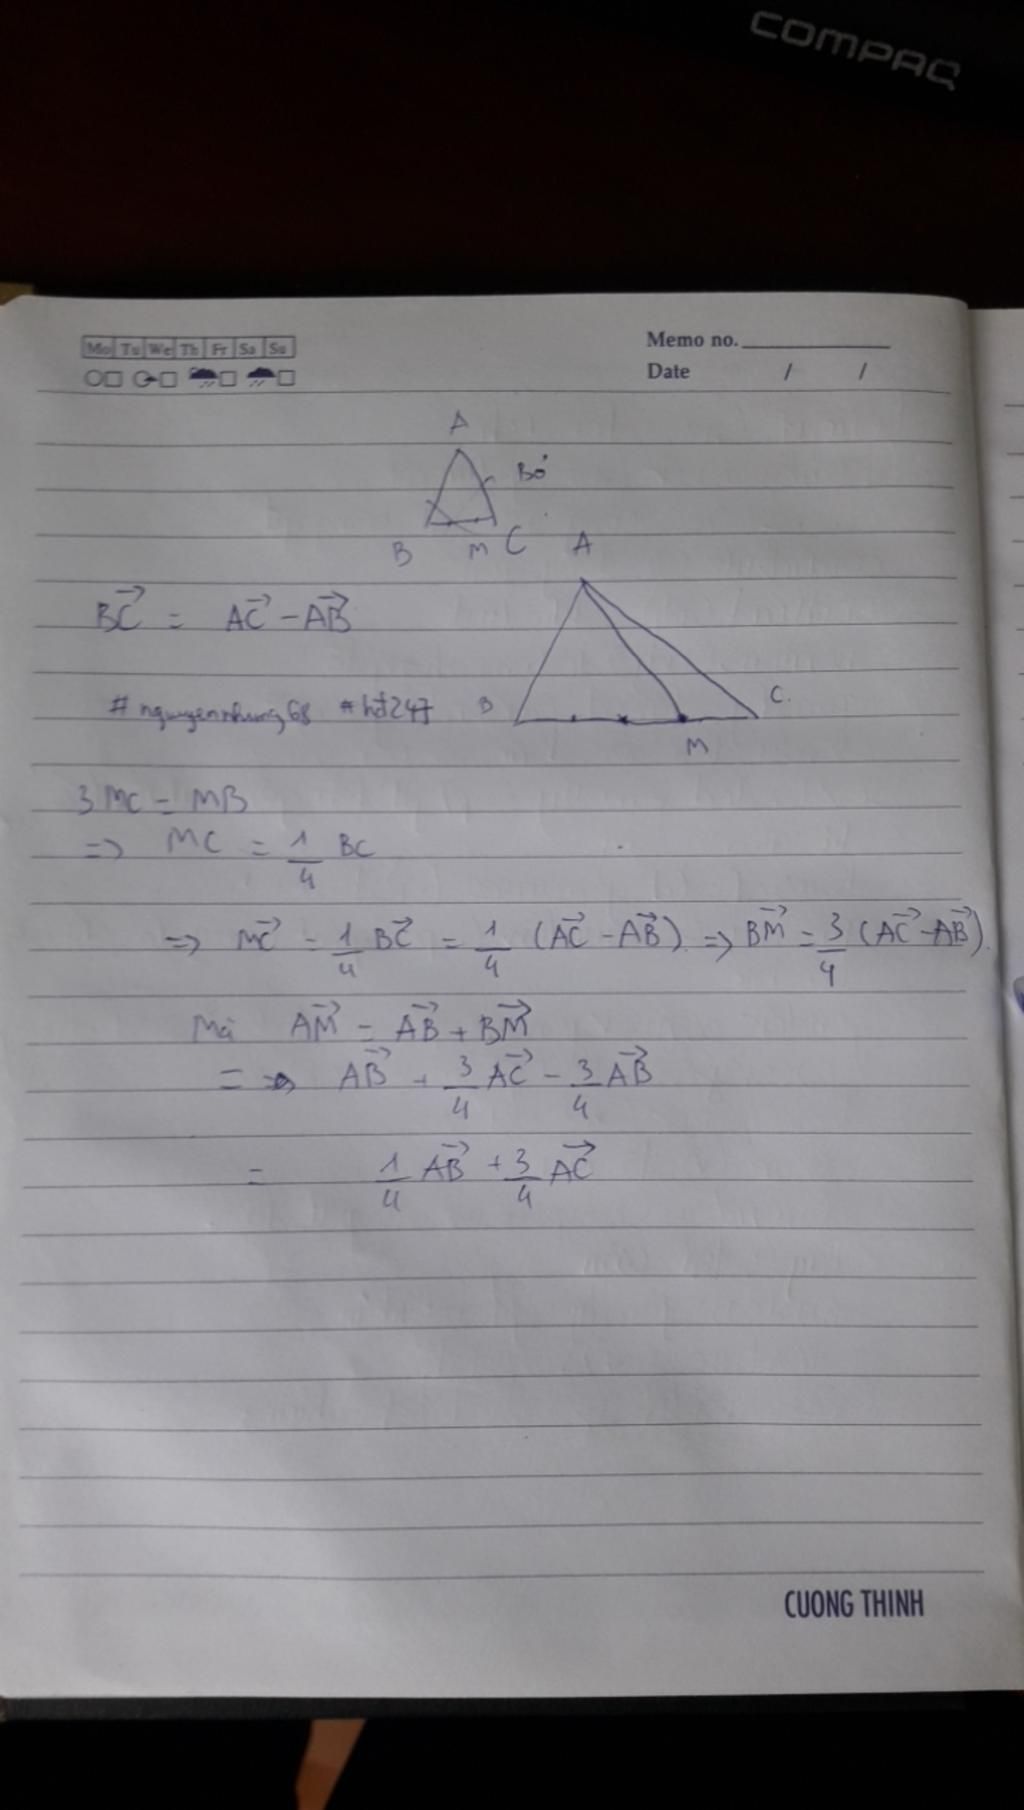 COMPAQ
Mo Tu We Th Fr Sa Su
Memo no.
Date / /
A
Bỏ
B M C
A
BC→ = AC→ - AB→
B C.
#nguyennhung68 #hđ247
M
3MC = MB
=> MC = 1/4 BC
=> MC→ = 1/4 BC→ = 1/4 (AC→ - AB→) => BM→ = 3/4 (AC→ - AB→).
Mà AM→ = AB→ + BM→
= AB→ + 3/4 AC→ - 3/4 AB→
= 1/4 AB→ + 3/4 AC→
CUONG THINH